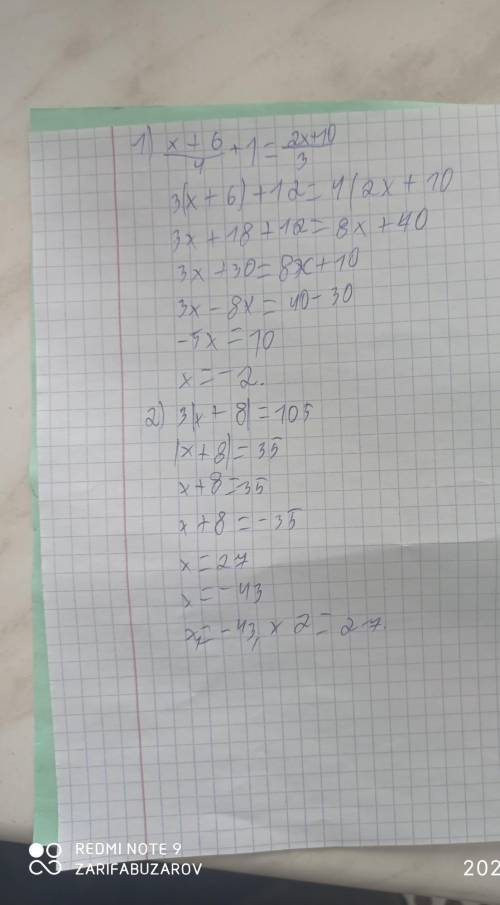 1) x + 6 / 4 + 1 = 2x+10 / 3
3(x + 6) + 12 = 4(2x + 10
3x + 18 + 12 = 8x + 40
3x + 30 = 8x + 10
3x - 8x = 40 - 30
-5x = 10
x = -2.
2) 3|x + 8| = 105
|x + 8| = 35
x + 8 = 35
x + 8 = -35
x = 27
x = -43
x1 = -43, x 2 = 27.
REDMI NOTE 9
ZARIFABUZAROV
202